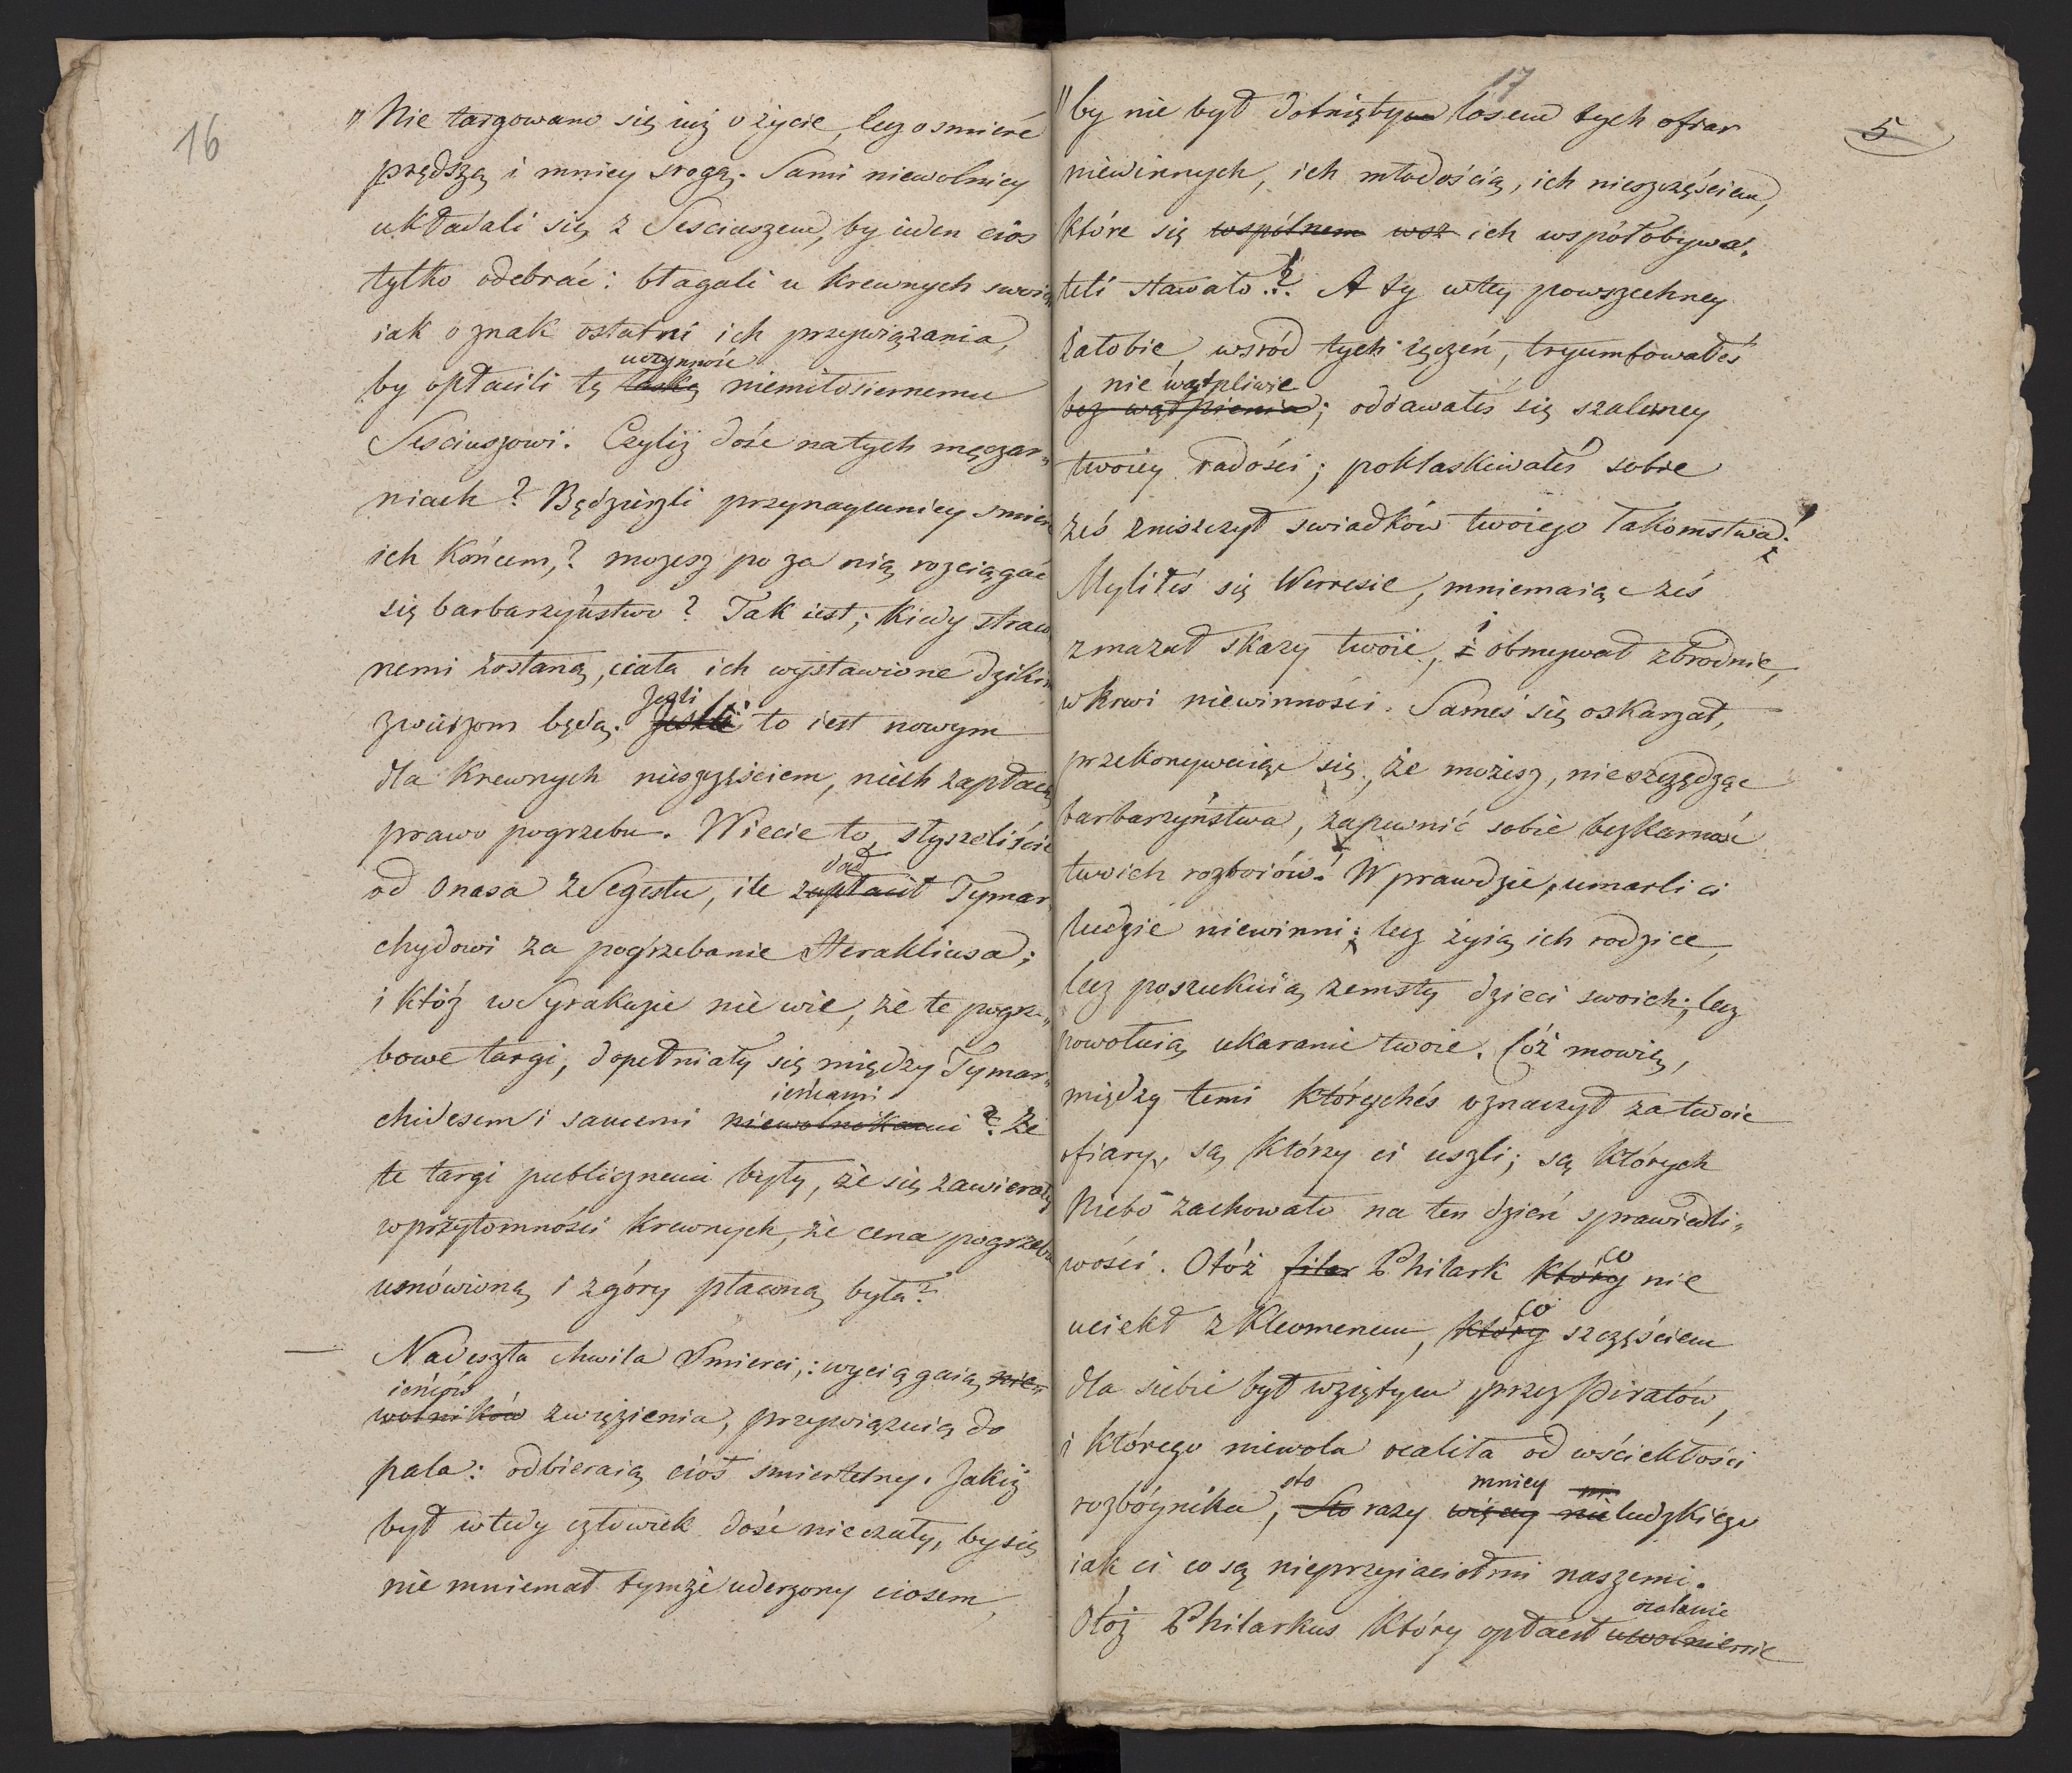 16
„Nie targowano się iuż o życie, lecz o smierć
prędszą i mniey srogą. Sami niewolnicy
układali się z Sesciuszem, by ieden cios
tylko odebrać: błagali u krewnych swoich
iak o znak ostatni ich przywiązania,
uczynność
by opłacili tę łaskę niemiłosiernemu
Sesciuszowi. Czyliż dość na tych męczar„
niach? Będzieżli przynaymniey smierć
ich końcem,? możesz po za nią rozciągać
się barbarzyństwo? Tak iest; kiedy straco
nemi zostaną, ciała ich wystawione dzikim
Jeżli
zwierzom będą. Jeśli to iest nowym
dla krewnych nieszczęściem, niech zapłacą
prawo pogrzebu. Wiecie to, słyszeliście
dał
od Onasa z Segestu, ile zapłacił Tymar„
chydowi za pogrzebanie Herakliusa;
i któż w Syrakuzie nie wie, że te pogrze„
bowe targi, dopełniały się między Tymar„
ieńcami
chidesem i samemi niewolnikami? Że
te targi publicznemi były, że się zawierały
w przytomności krewnych, że cena pogrzebu
umówioną i z góry płaconą była?
— Nadeszła chwila Smierci,: wyciągaią nie„
ieńców
wolników z więzienia, przywiązuią do
pala: odbieraią cios smiertelny. Jakiż
był wtedy człowiek dość nieczuły, by się
nie mniemał tymże uderzony ciosem,
17
5
„by nie był dotniętym losem tych ofiar
niewinnych, ich młodością, ich nieszczęściem,
które się wspólnem wsz ich współobywa„
teli stawało?. A ty w tey powszechney
żałobie, wsród tych ięczeń, tryumfowałeś
nie wątpliwie
bez wątpienia; oddawałeś się szaloney
twoiey radości; poklaskiwałeś sobie
żeś zniszczył swiadków twoiego łakomstwa!
Myliłeś się Werresie, mniemaiąc żeś
i
zmazał skazy twoie, i obmywał zbrodnie,
w krwi niewinności. Sameś się oskarżał,
przekonywaiąc się, że możesz, nie szczędząc
barbarzyństwa, zapewnić sobie bezkarność
twoich rozboiów! W prawdzie, umarli ci
ludzie niewinni; lecz żyią ich rodzice,
lecz poszukuią zemsty dzieci swoich; lecz
powołuią ukaranie twoie. Cóż mowię,
między temi którycheś oznaczył za twoie
ofiary, są którzy ci uszli; są których
Niebo zachowało na ten dzień sprawiedli„
co
wości. Otóż filar Philark który nie
co
uciekł z Kleomenem, który szczęściem
dla siebie był wziętym przez Piratów,
i którego niewola ocaliła od wściekłości
sto mniey
rozbóynika, Sto razy więcey nie ludzkiego
iak ci co są nieprzyiaciołmi naszemi.
ocalenie
Otóż Philarkus który opłacił uwolnienie